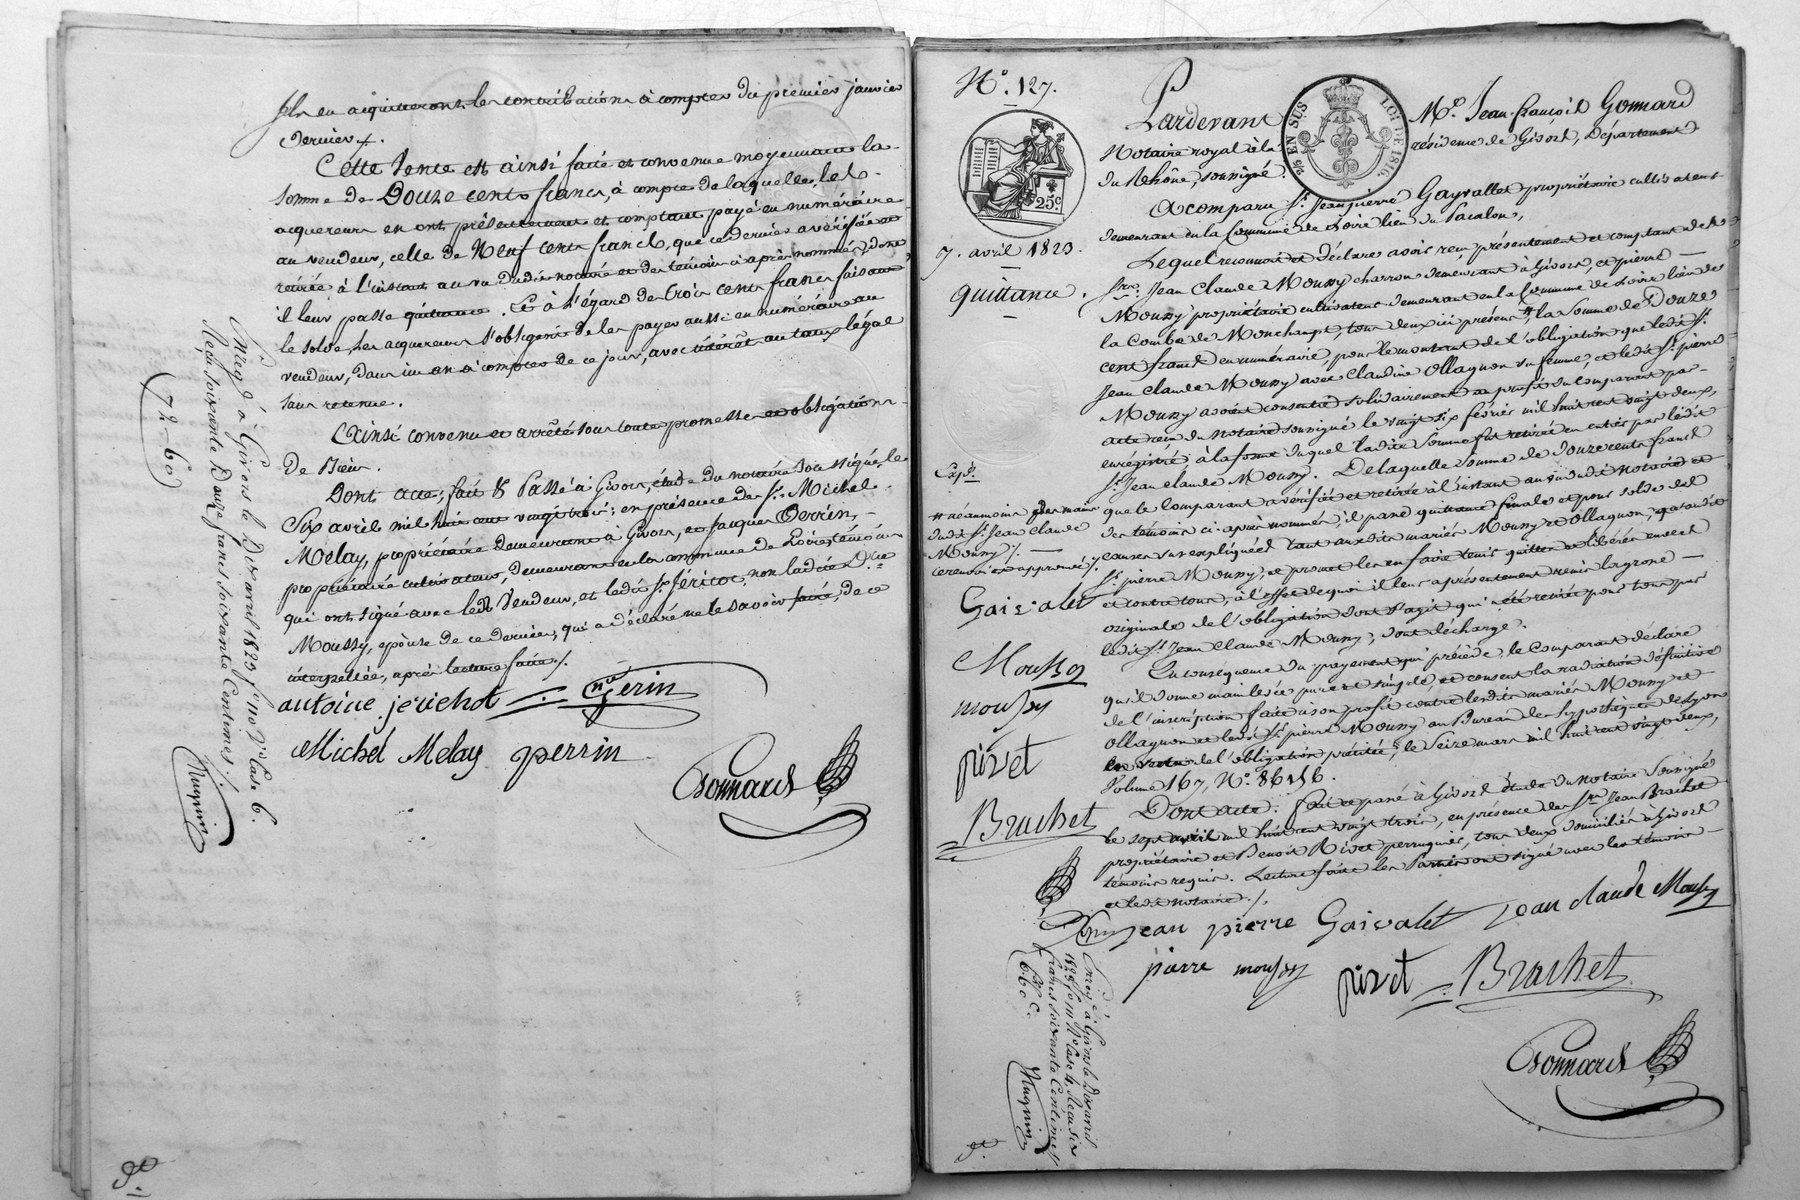 Ils en acquitteront les contributions à compter du premier janvier
dernier.
Cette Vente est ainsi faite et convenue moyennant la
somme de Douze cents francs, à compte de laquelle, les
acquereurs en ont présentement et comptant payé en numéraire
au vendeur, celle de Neuf cents francs, que ce dernier a vérifiée et
retirée à l'instant au vu dudit notaire et des témoins ci après nommés, dont
il leur passe quittance. Et à l'égard des trois cents francs faisant
le solde, les acquereurs s'obligent de les payer aussi en numéraire au
vendeur, dans un an à compter de ce jour, avec intérêt au taux légal
sans retenue.
Ainsi convenu et arrêté sous toute promesse et obligation
de Biens.
Dont acte, fait & Passé à Givors, étude du notaire soussigné, le
Six avril mil huit cent vingt trois; en présence de Sr. Michel
Melay, propriétaire demeurant à Givors, et Jacques Perrin,
propriétaire cultivateur, demeurant en la commune de Loire, témoins
qui ont signé avec le Vendeur, et ledit Sr. Jéricot, non ladite De.
Moussy, épouse de ce dernier, qui a déclaré ne le savoir faire, de ce
interpellée, après lecture faite./.
antoine jerichot Gerin
Michel Melay perrin
Gonnard
Enreg.é à Givors le Dix avril 1823 f.° 110 V.° Case 6.
Reçu soixante Douze francs soixante Centimes.
(72-60)
N.° 127.
25 EN SUS LOI DE 1816.
25c
7. avril 1823.
Quittance.
Pardevant Me. Jean-françois Gonnard
Notaire royal à la résidence de Givors, Département
du Rhône, soussigné.
A comparu Sr. Jean pierre Gayvallet propriétaire cultivateur
demeurant en la Commune de Loire lieu du Pacalon,
Lequel reconnait et déclare avoir reçu présentement et comptant des
Srs. Jean Claude Moussy charron demeurant à Givors, et pierre
Moussy propriétaire cultivateur demeurant en la Commune de Loire lieu des
la Combe de Monchaupt, tous deux ici présens # la somme de Douze
cent francs en numéraire, pour le montant de l'obligation que ledit Sr.
Jean Claude Moussy avec Claudine Ollagnon sa femme, et ledit Sr. pierre
Moussy avoient consentie solidairement au profit du Comparant par
acte reçu du Notaire soussigné le vingt six février mil huit cent vingt deux,
enrégistré, à la forme duquel ladite Somme fut retirée en entier par ledit
Sr. Jean Claude Moussy. De laquelle Somme de douze cents francs
que le Comparant a vérifiée et retirée à l'instant au vu dudit Notaire et
des témoins ci après nommés, il passe quittance finale et pour solde des
causes sus expliquées tant auxdits mariés Moussy et Ollagnon, qu'audit
Sr. pierre Moussy, et promet les en faire tenir quittes et libérés envers
et contre tous, à l'effet de quoi il leur a présentement remis la grosse
originale de l'obligation dont s'agit qui a été retirée pour tous par
ledit Sr. Jean Claude Moussy, dont décharge.
En conséquence du payement qui précède, le Comparant déclare
qu'il donne mainlevée pure et simple et consent la radiation définitive
de l'inscription faite à son profit contre lesdits mariés Moussy et
Ollagnon et ledit Sr. pierre Moussy au Bureau des hypothèques de Lyon
en vertu de l'obligation précitée, le Seize mars mil huit cent vingt deux,
Volume 167, N.° 86456.
Dont acte. fait et passé à Givors étude du Notaire Soussigné
le sept avril mil huit cent vingt trois, en présence des Srs. Jean Brachet
propriétaire et Benoit Rivet perruquier, tous deux domiciliés à Givors
témoins requis. Lecture faite les Parties ont signé avec les témoins
et ledit notaire./.
Expé.
# néanmoins des mains
dudit Sr. Jean Claude
Moussy./.
ce renvoi est approuvé./.
Gaivalet
Moussy
moussy
rivet
Brachet
jean pierre Gaivalet jean claude Moussy
pierre moussy rivet Brachet
Gonnard
Enreg.é à Givors le Dix avril
1823 f.° 111 R.° Case 4. Reçu six
francs soixante Centimes
6f 60c.